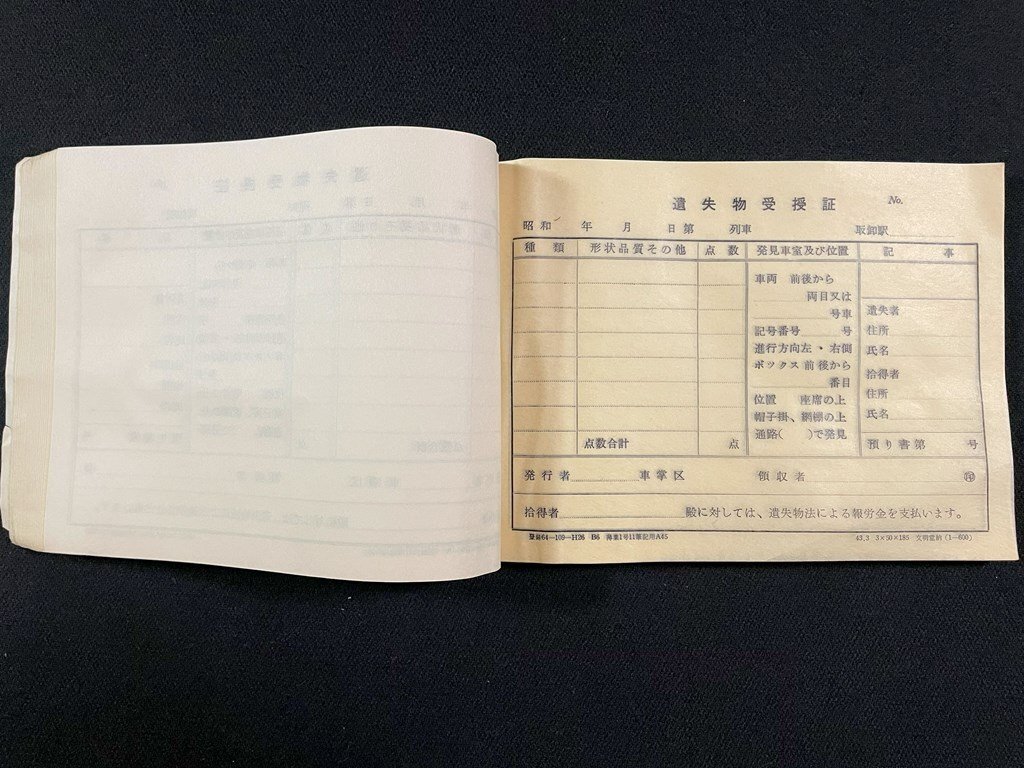 遺失物受授証 No.
昭和 年 月 日第 列車 取卸駅
種類 形状品質その他 点数 発見車室及び位置 記事
車両 前後から
両目又は
号車
記号番号 号
進行方向左・右側
ボックス前後から
番目
位置 座席の上
帽子掛、網棚の上
通路( )で発見
遺失者
住所
氏名
拾得者
住所
氏名
点数合計 点
預り書第 号
発行者 車掌区 領収者 ㊞
拾得者 殿に対しては、遺失物法による報労金を支払います。
登録64—109—H26 B6 薄葉1号11筆記用A45 43.3 3×50×185 文明堂納(1—600)